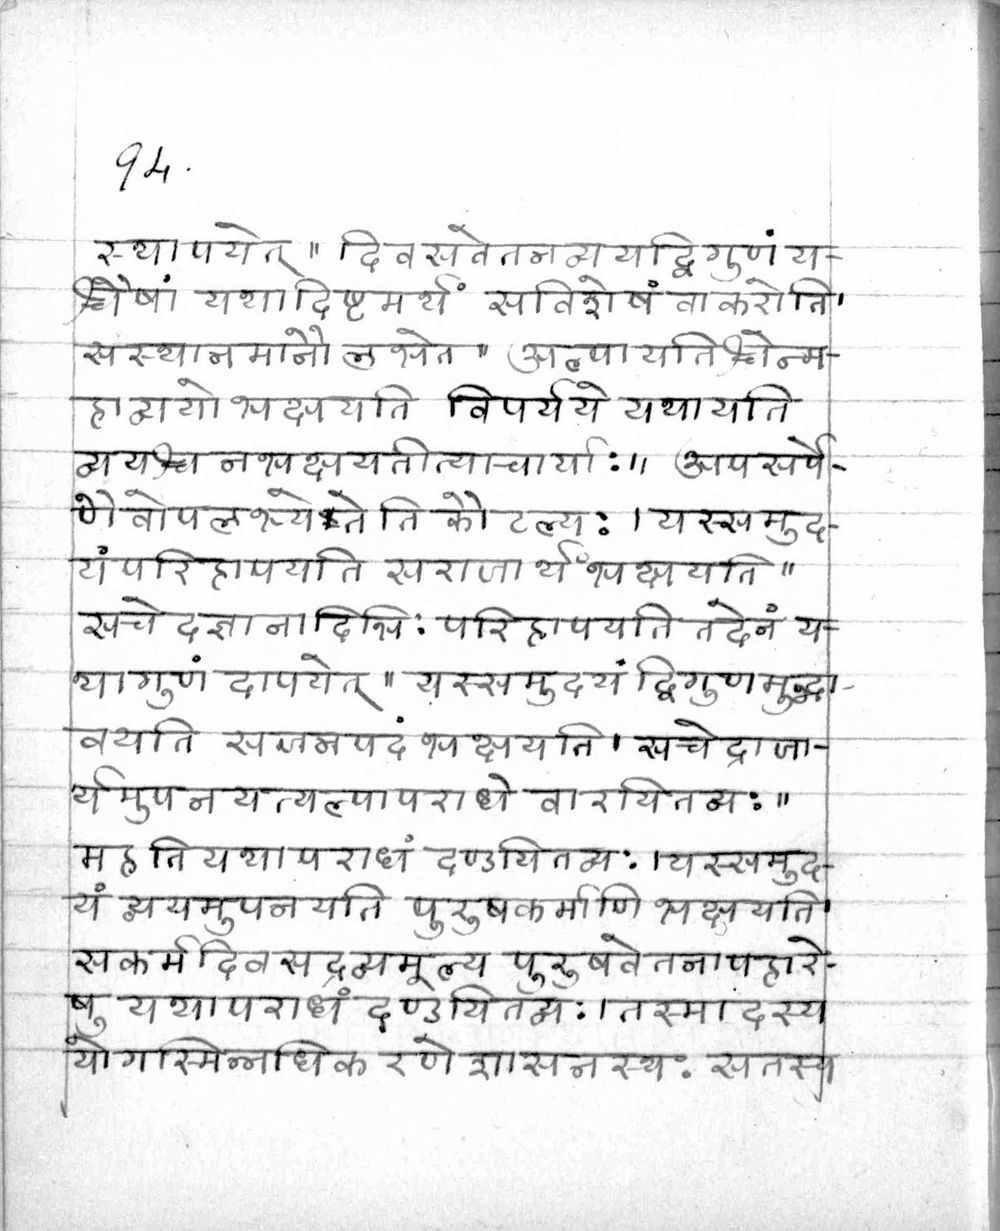 94.
स्थापयेत्॥ दिवसवेतनव्ययद्विगुणं य-
श्चैषां यथादिष्टमर्थं सविशेषं वा करोति।
सस्थानमानौ लभेत॥ अल्पायतिश्चेन्म-
हाव्ययो भक्षयति विपर्यये यथायति
व्ययश्च नभक्षयतीत्याचार्याः॥ अपसर्पे-
णैवोपलभ्येतेति कौटल्यः। यस्समुद-
यंपरिहापयति सराजार्थंभक्षयति॥
सचेदज्ञानादिभिः परिहापयति तदेनं य-
थागुणं दापयेत्॥ यस्समुदयं द्विगुणमुद्भा-
वयति सजनपदं भक्षयति। सचेद्राजा-
र्थमुपनयत्यल्पापराधे वारयितव्यः॥
महतियथापराधं दण्डयितव्यः।यस्समुद-
यं व्ययमुपनयति पुरुषकर्माणि भक्षयति।
सकर्मदिवसद्रव्यमूल्य पुरुषवेतनापहारे-
षु यथापराधं दण्डयितव्यः।तस्मादस्य
योगस्मिन्नधिकरणे शासनस्थः सतस्य